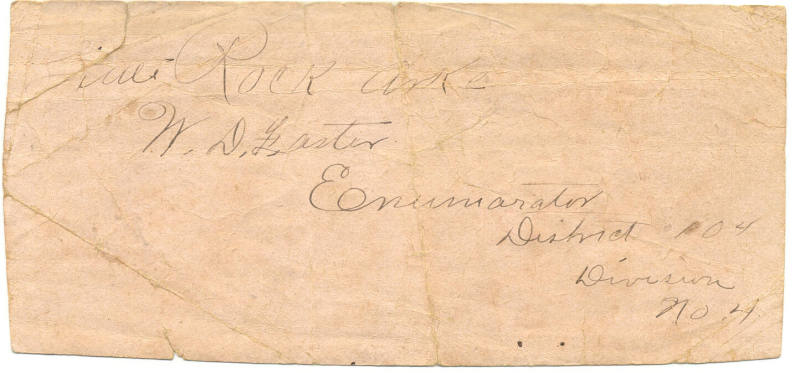 Little Rock Arks
W. D.
Enumarator
District 104
Division
No. 4